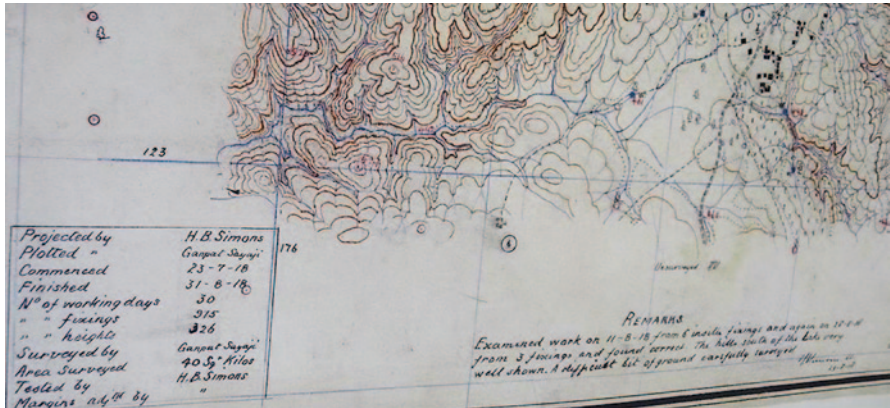 123
176
Projected by H.B. Simons
Plotted " Ganpat Sayaji
Commenced 23-7-18
Finished 31-8-18
Nº of working days 30
" " fixings 915
" " heights 326
Surveyed by Ganpat Sayaji
Area Surveyed 40 Sqr Kilos
Tested by H.B. Simons
Margins adjtd by "
6
REMARKS.
Examined work on 11-8-18 from 6 insitu fixings and again on
from 3 fixings and found correct. The hills south of the very
well shown. A difficult bit of ground carefully surveyed